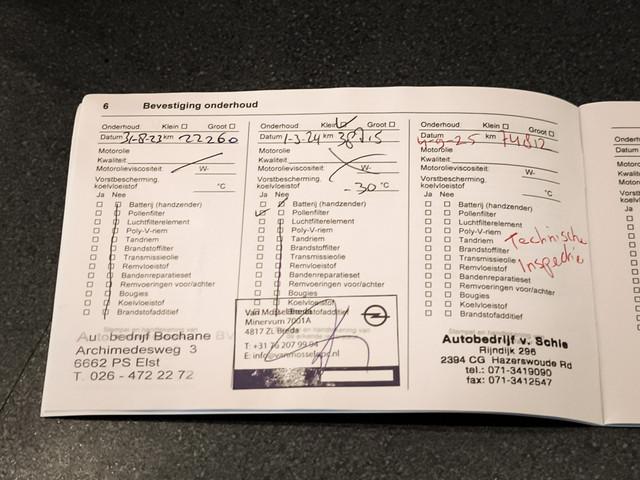 6 Bevestiging onderhoud
Onderhoud Klein Groot
Datum 31-8-23 km 22260
Motorolie
Kwaliteit
Motorolieviscositeit W-
Vorstbescherming,
koelvloeistof °C
Ja Nee
Batterij (handzender)
Pollenfilter
Luchtfilterelement
Poly-V-riem
Tandriem
Brandstoffilter
Transmissieolie
Remvloeistof
Bandenreparatieset
Remvoeringen voor/achter
Bougies
Koelvloeistof
Brandstofadditief
Autobedrijf Bochane BV
Archimedesweg 3
6662 PS Elst
T. 026 - 472 22 72
Onderhoud Klein Groot
Datum 1-3-24 km
Motorolie
Kwaliteit
Motorolieviscositeit W-
Vorstbescherming,
koelvloeistof -30 °C
Ja Nee
Batterij (handzender)
Pollenfilter
Luchtfilterelement
Poly-V-riem
Tandriem
Brandstoffilter
Transmissieolie
Remvloeistof
Bandenreparatieset
Remvoeringen voor/achter
Bougies
Koelvloeistof
Brandstofadditief
Van Mossel Breda
Minervum 7001A
4817 ZL Breda
Onderhoud Klein Groot
Datum 4-9-25 km 74812
Motorolie
Kwaliteit
Motorolieviscositeit W-
Vorstbescherming,
koelvloeistof °C
Ja Nee
Batterij (handzender)
Pollenfilter
Luchtfilterelement
Poly-V-riem
Tandriem
Brandstoffilter
Transmissieolie
Remvloeistof
Bandenreparatieset
Remvoeringen voor/achter
Bougies
Koelvloeistof
Brandstofadditief
Technische
Inspectie
Autobedrijf v. Schie
Rijndijk 296
2394 CG Hazerswoude Rd
tel.: 071-3419090
fax: 071-3412547